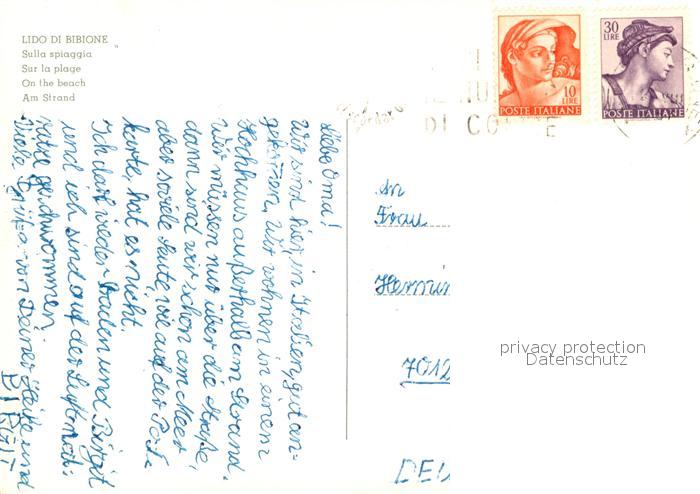 LIDO DI BIBIONE
Sulla spiaggia
Sur la plage
On the beach
Am Strand
10
LIRE
POSTE ITALIANE
30
LIRE
POSTE ITALIANE
DI CO
Liebe Oma!
Wir sind hier, in Italien, gut an-
gekommen. Wir wohnen in einem
Hochhaus außerhalb am Strand.
Wir müssen nur über die Straße,
dann sind wir schon am Meer
aber soviele Leute wie auf der Post-
karte, hat es nicht.
Ich darf wieder baden und Birgit
und ich sind auf der Luftmat-
ratze geschwommen.
Viele Grüße von Deiner Heike und
BIRGIT
An
Frau
Hermin
7012
DEU
privacy protection
Datenschutz